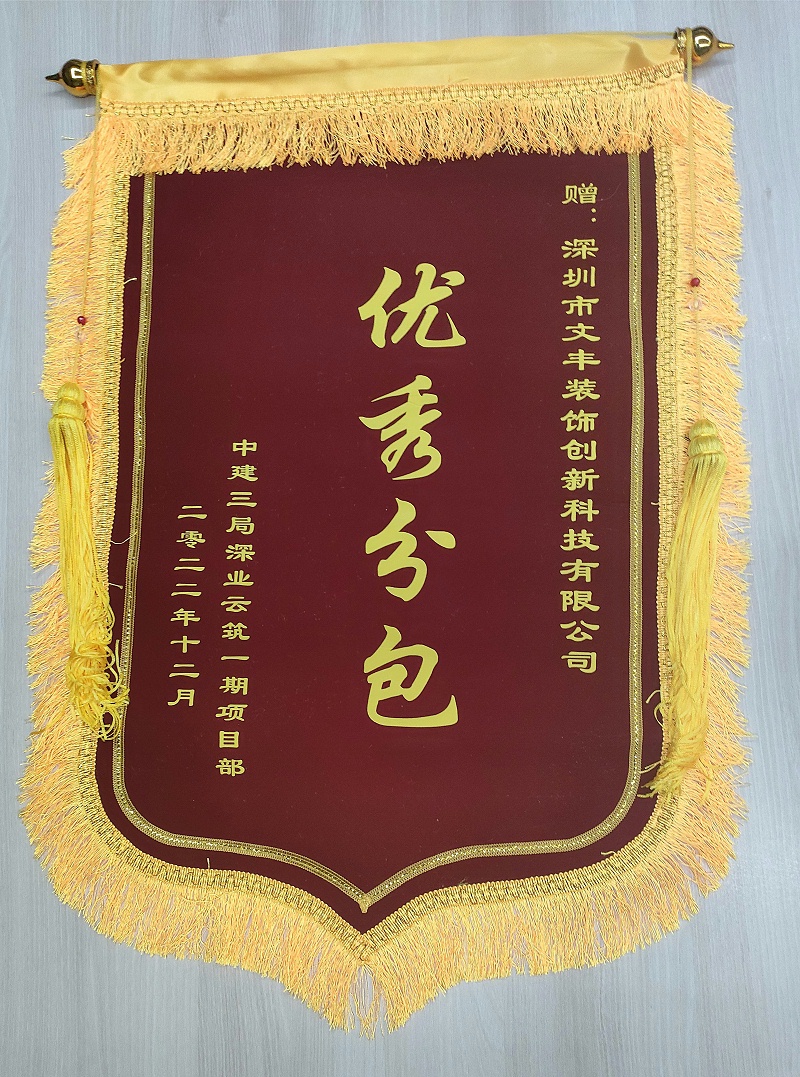 赠：深圳市文丰装饰创新科技有限公司
优秀分包
中建三局深业云筑一期项目部
二零二二年十二月